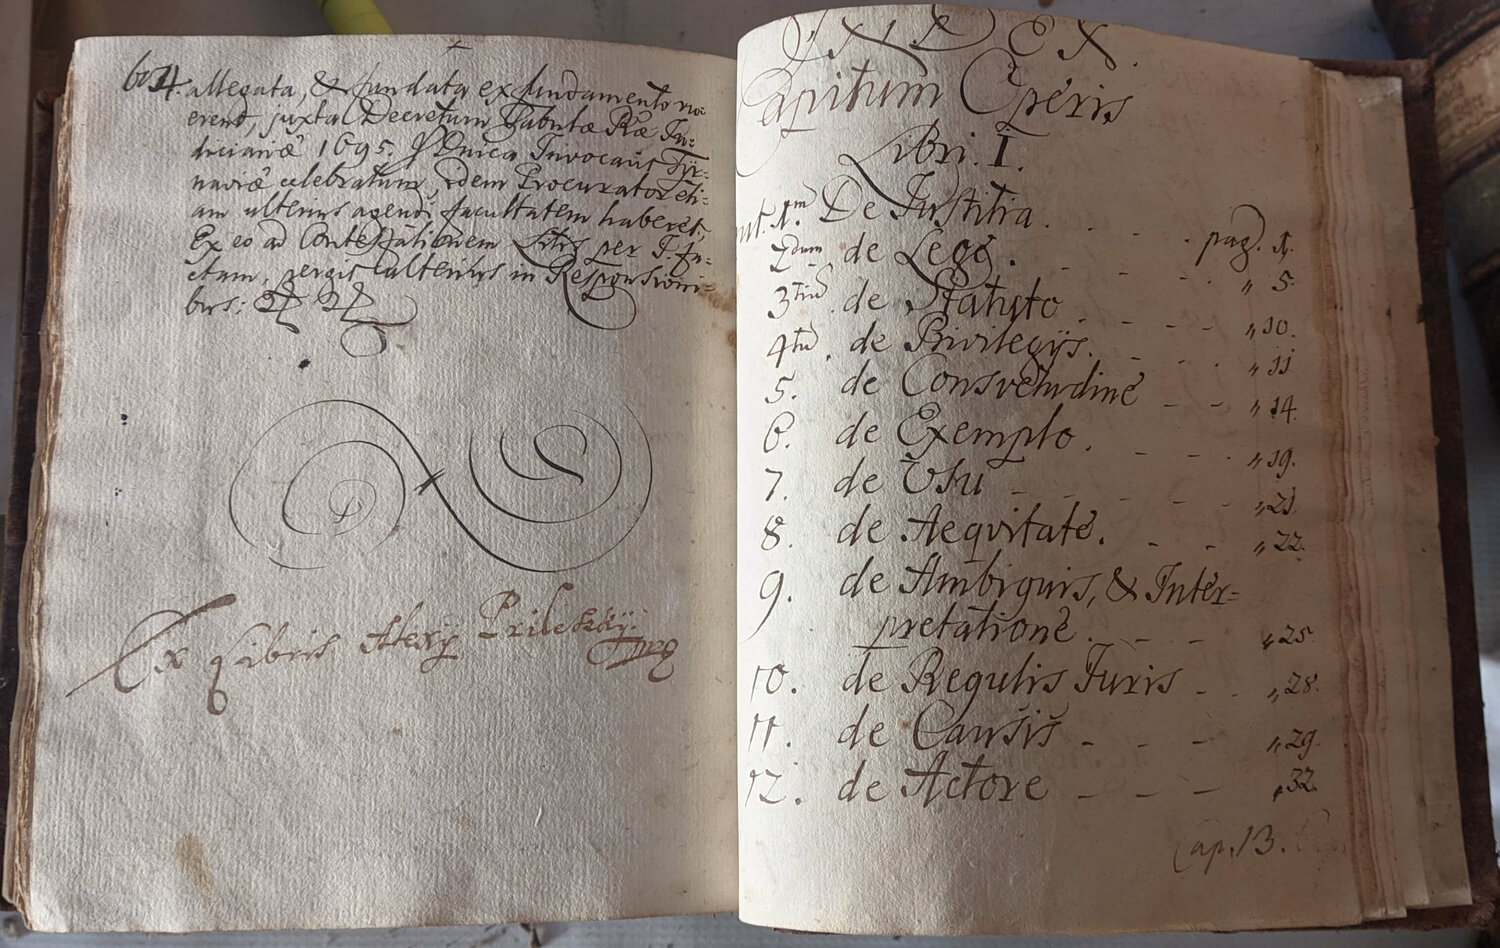 604. allegata, & fundata ex fundamento mo
erend, juxta Decretum Tabulæ Ræ Ju=
diciariæ 1695. § Unica Invocavit Tyr=
naviæ celebratum, idem Procurator eti=
am ulterius agendi facultatem haberet,
Ex eo ad Contestationem Litis per I. fa=
ctam, pergit ulterius in Responsioni=
bus:
Ex Libris Alexÿ Prileszkÿ mp
INDEX.
Capitum Operis
Libri. I.
1m. De Justitia. pag. 1.
2dum de Lege. " 5.
3tiũ. de Statuto " 10.
4tũ. de Privilegÿs. " 11
5. de Consvetudine " 14.
6. de Exemplo. " 19.
7. de Usu " 21.
8. de Aeqvitate. " 22.
9. de Ambiguis, & Inter=
pretatione. " 25.
10. de Regulis Juris " 28.
11. de Causis " 29.
12. de Actore " 32.
Cap. 13.